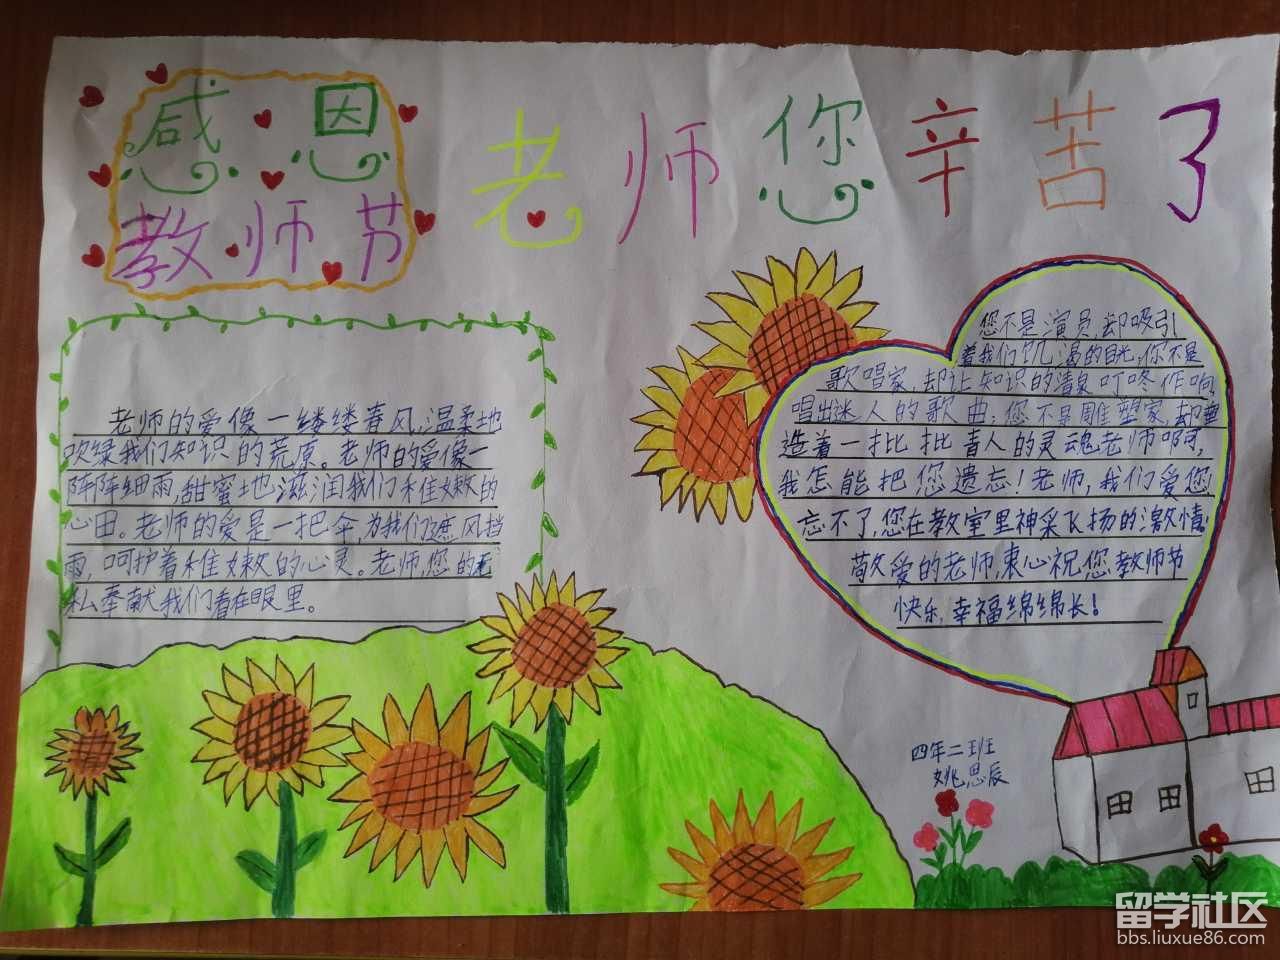 感恩
教师节
老师您辛苦了
老师的爱像一缕缕春风,温柔地
吹绿我们知识的荒原。老师的爱像一
阵阵细雨,甜蜜地滋润我们稚嫩的
心田。老师的爱是一把伞,为我们遮风挡
雨,呵护着稚嫩的心灵。老师,您的无
私奉献我们看在眼里。
您不是演员,却吸引
着我们饥渴的目光,你不是
歌唱家,却让知识的清泉叮咚作响,
唱出迷人的歌曲;您不是雕塑家,却塑
造着一批批青人的灵魂老师啊,
我怎能把您遗忘!老师,我们爱您
忘不了,您在教室里神采飞扬的激情。
敬爱的老师,衷心祝您教师节
快乐,幸福绵绵长!
四年二班
姚思辰
留学社区
bbs.liuxue86.com